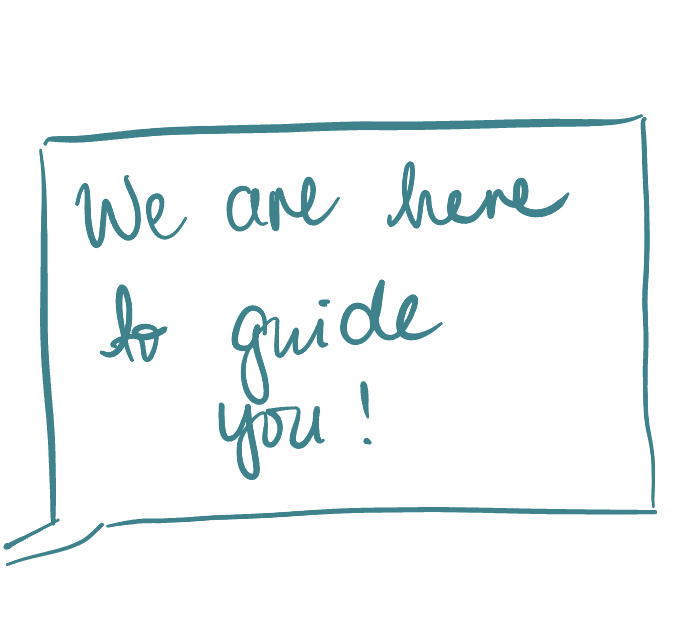 We are here
to guide
you!